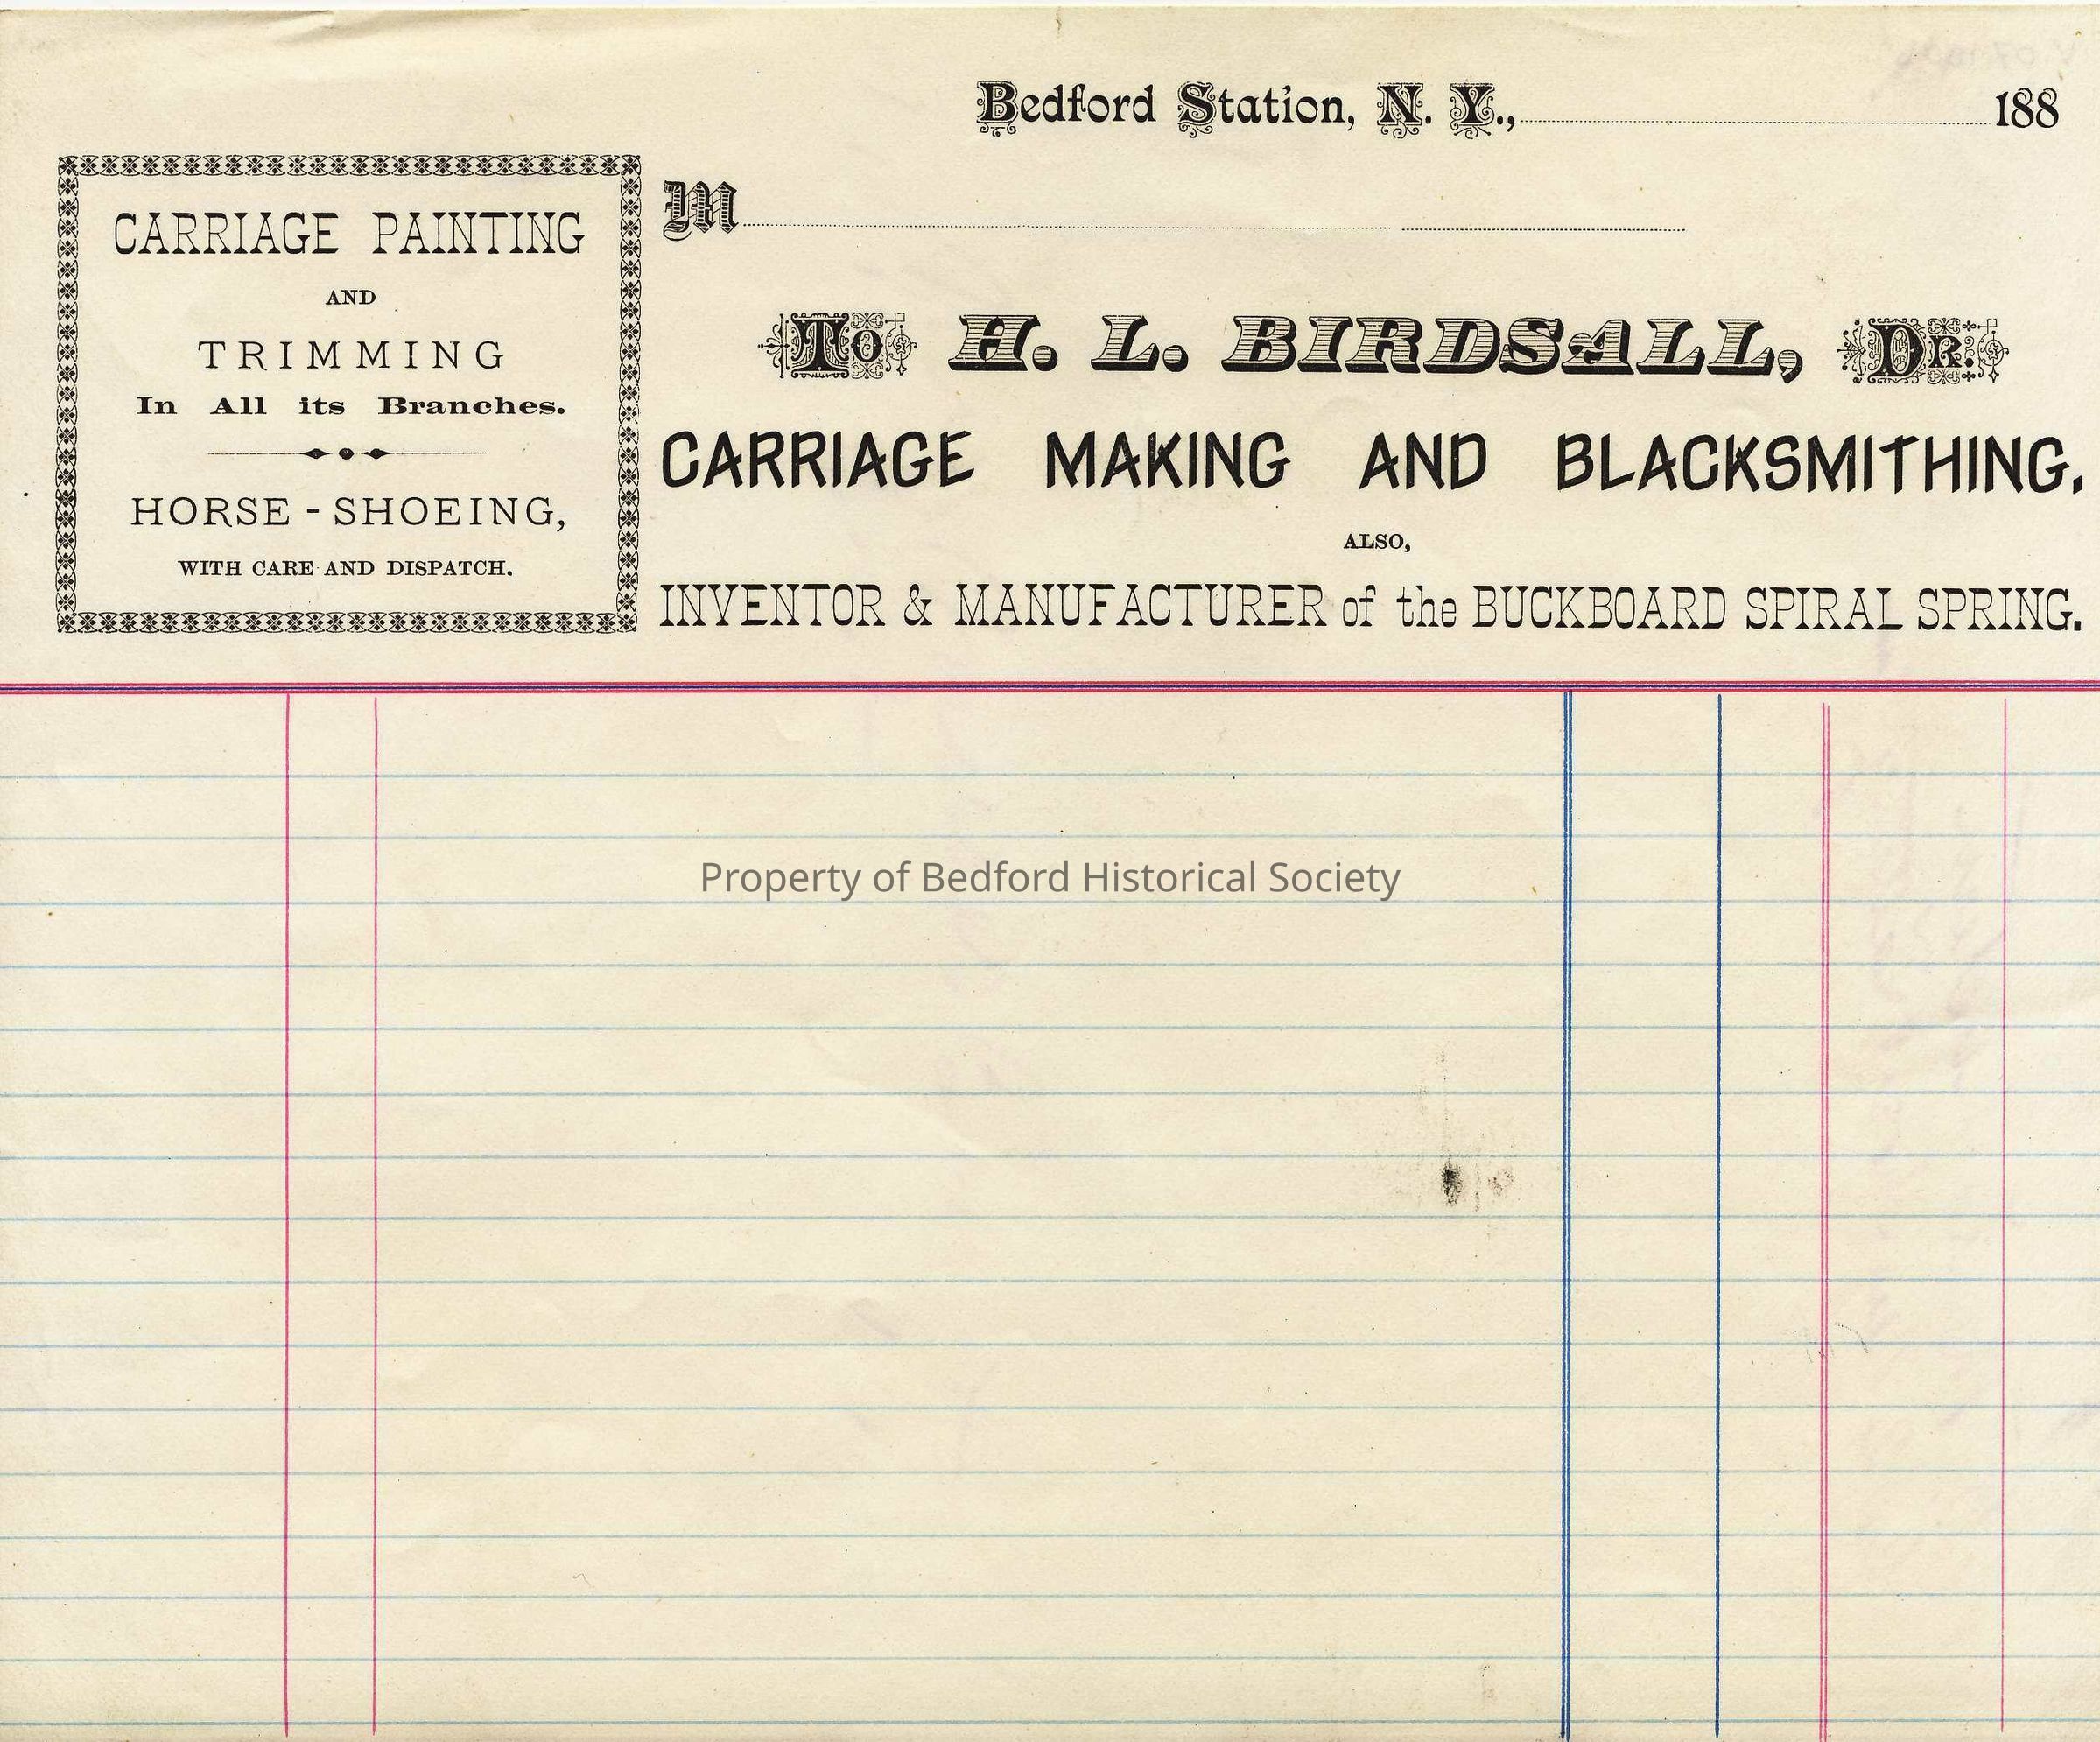 Bedford Station, N. Y., 188
M
CARRIAGE PAINTING
AND
TRIMMING
In All its Branches.
HORSE - SHOEING,
WITH CARE AND DISPATCH.
To H. L. BIRDSALL, Dr.
CARRIAGE MAKING AND BLACKSMITHING.
ALSO,
INVENTOR & MANUFACTURER of the BUCKBOARD SPIRAL SPRING.
Property of Bedford Historical Society